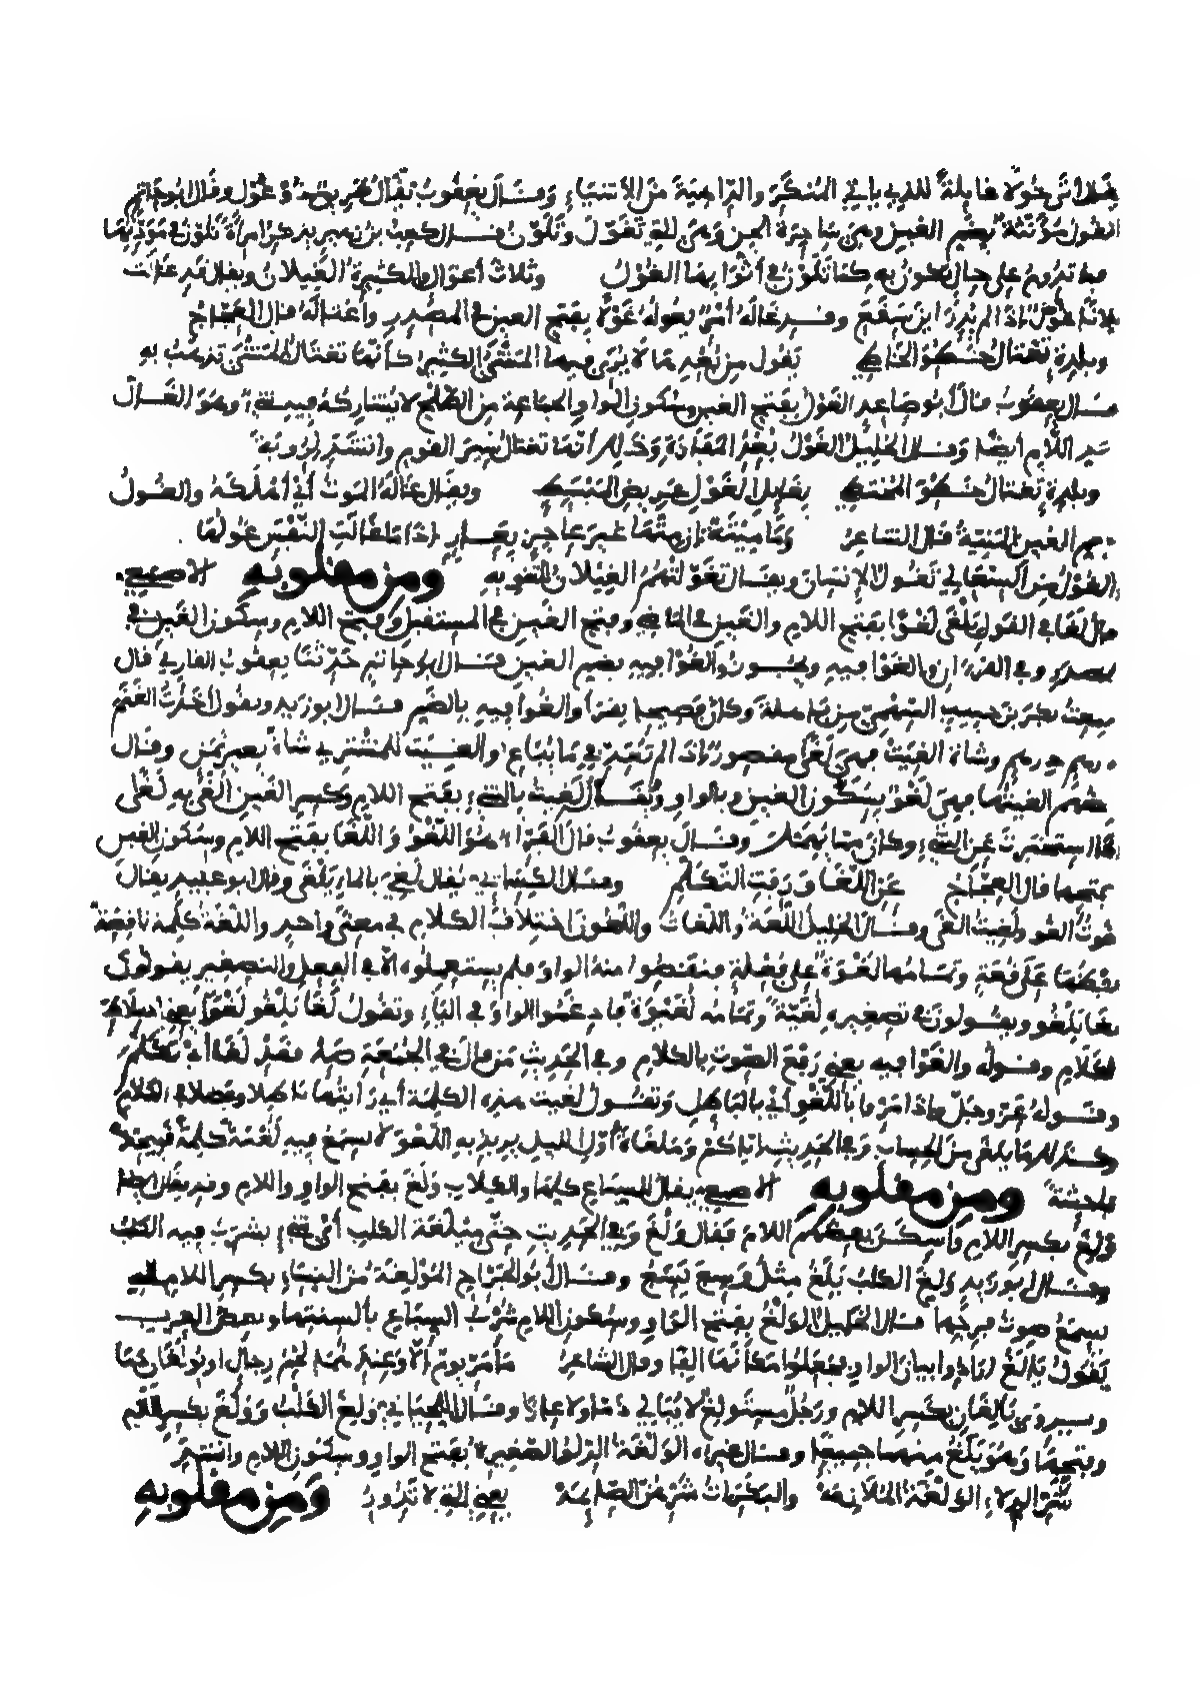 يقال أتى غولا غائلة للذي يأتي المنكر والداهية من الأشياء وقال يعقوب يقال غول وقال أبو حاتم
الغول مؤنثة بضم الغين وهي ساحرة الجن وهي التي تغول وتلون قال كعب بن زهير يذكر امرأة تلون في مودتها
فما تدوم على حال تكون به كما تلون في أثوابها الغول وثلاث أغوال والكثيرة الغيلان
لم يدر أين سقع وقد غاله أمر يغوله غولا بفتح الغين في المصدر وأغتاله قال العجاج
وبلدة تغتال خطو الخاطي يقول من بعدها لا يرى فيها المشي الكثير كأنما تغتال المشي تذهب به
قال يعقوب قال أبو صاعد الغول بفتح الغين وسكون الواو الجماعة من الطلح لا يشاركه شيء وهو
اللام أيضا وقال الخليل الغول بعد المفازة وذلك أنها تغتال سير القوم وأنشد لرؤبة
وبلدة تغتال خطو المختطي بغائل الغول عريض المبسط ويقال غاله الموت أي أهلكه والغول
بضم الغين المنية قال الشاعر وما ميتة إن متها غير عاجز بعار إذا ما غالت النفس غولها
الغول من السعالي تغول الإنسان ويقال تغولتهم الغيلان ومن مقلوبه الأصمعي
يقال لغا في القول يلغى لغوا بفتح اللام والغين في الماضي وفتح الغين في المستقبل وفتح اللام وسكون الغين في
المصدر وفي القرءان والغوا فيه والغوا فيه بضم الغين قال أبو حاتم حدثنا يعقوب القاري قال
سمعت بكر بن حبيب السهمي من باهلة وكان فصيحا يقرأ والغوا فيه بالضم قال أبو زيد ويقول أخذت الغنم
وشاة ألغيت فهي لغى مقصور إذا لم تعد في ما يباع وألغيت للمشتري شاة بغير ثمن وقال
بعضهم ألغيتها فهي لغو بسكون الغين وبالواو ويقال لغيت بالشيء بفتح اللام وكسر الغين ألغى به لغى
وقال يعقوب قال الفراء هو اللغو واللغا بفتح اللام وسكون الغين
وفتحها قال العجاج عن اللغا ورفث التكلم وقال الكسائي يقال لغي بالماء يلغى وقال أبو عبيد يقال
لغوت ألغو ولغيت ألغى وقال الخليل اللغة واللغات واللغون اختلاف الكلام في معنى واحد واللغة كلمة ناقصة
لفظها على فعة وتمامها لغوة على فعلة فنقضوا منه الواو فلم يستعملوه إلا في الفعل والتصغير يقولون
لغا يلغو ويقولون في تصغيره لغية وتمامه لغيوة فأدغموا الواو في الياء وتقول لغا يلغو لغوا يعني اختلاط
الكلام وقوله والغوا فيه يعني رفع الصوت بالكلام وفي الحديث من قال في الجمعة صه فقد لغا أي تكلم
وقوله عز وجل وإذا مروا باللغو أي بالباطل وتقول لغيت هذه الكلمة أي رأيتها باطلا وفضلا في الكلام
وكذلك ما يلغى من الحساب وفي الحديث إياكم وملغاة أول الليل يريد به اللغو لا تسمع فيه لغية كلمة قبيحة
فاحشة ومن مقلوبه الأصمعي يقال للسباع كلها والكلاب ولغ بفتح الواو واللام وقد يقال أيضا
ولغ بكسر اللام وأسكن بعضهم اللام فقال ولغ وفي الحديث حتى ميلغة الكلب أي شيء يشرب فيه الكلب
وقال أبو زيد ولغ الكلب يلغ مثل وسع يسع وقال أبو الجراح المولغة من النساء بكسر اللام التي
يسمع صوت فرجها قال الخليل الولغ بفتح الواو وسكون اللام شرب السباع بألسنتها وبعض العرب
يقول يالغ أرادوا بيان الواو فجعلوا مكانها ألفا وقال الشاعر ما مر يوم إلا وعندهما لحم رجال أو يولغان دما
ويروى يالغان بكسر اللام ورجل مستولغ لا يبالي ذما ولا عارا وقال اللحياني ولغ الكلب وولغ بكسر اللام
وفتحها وهو يلغ فيهما جميعا وقال غيره الولغة الدلو الصغيرة بفتح الواو وسكون اللام وأنشد
شر الدلاء الولغة الملازمه والبكرات شرهن الصائمه يعني التي لا تدور ومن مقلوبه